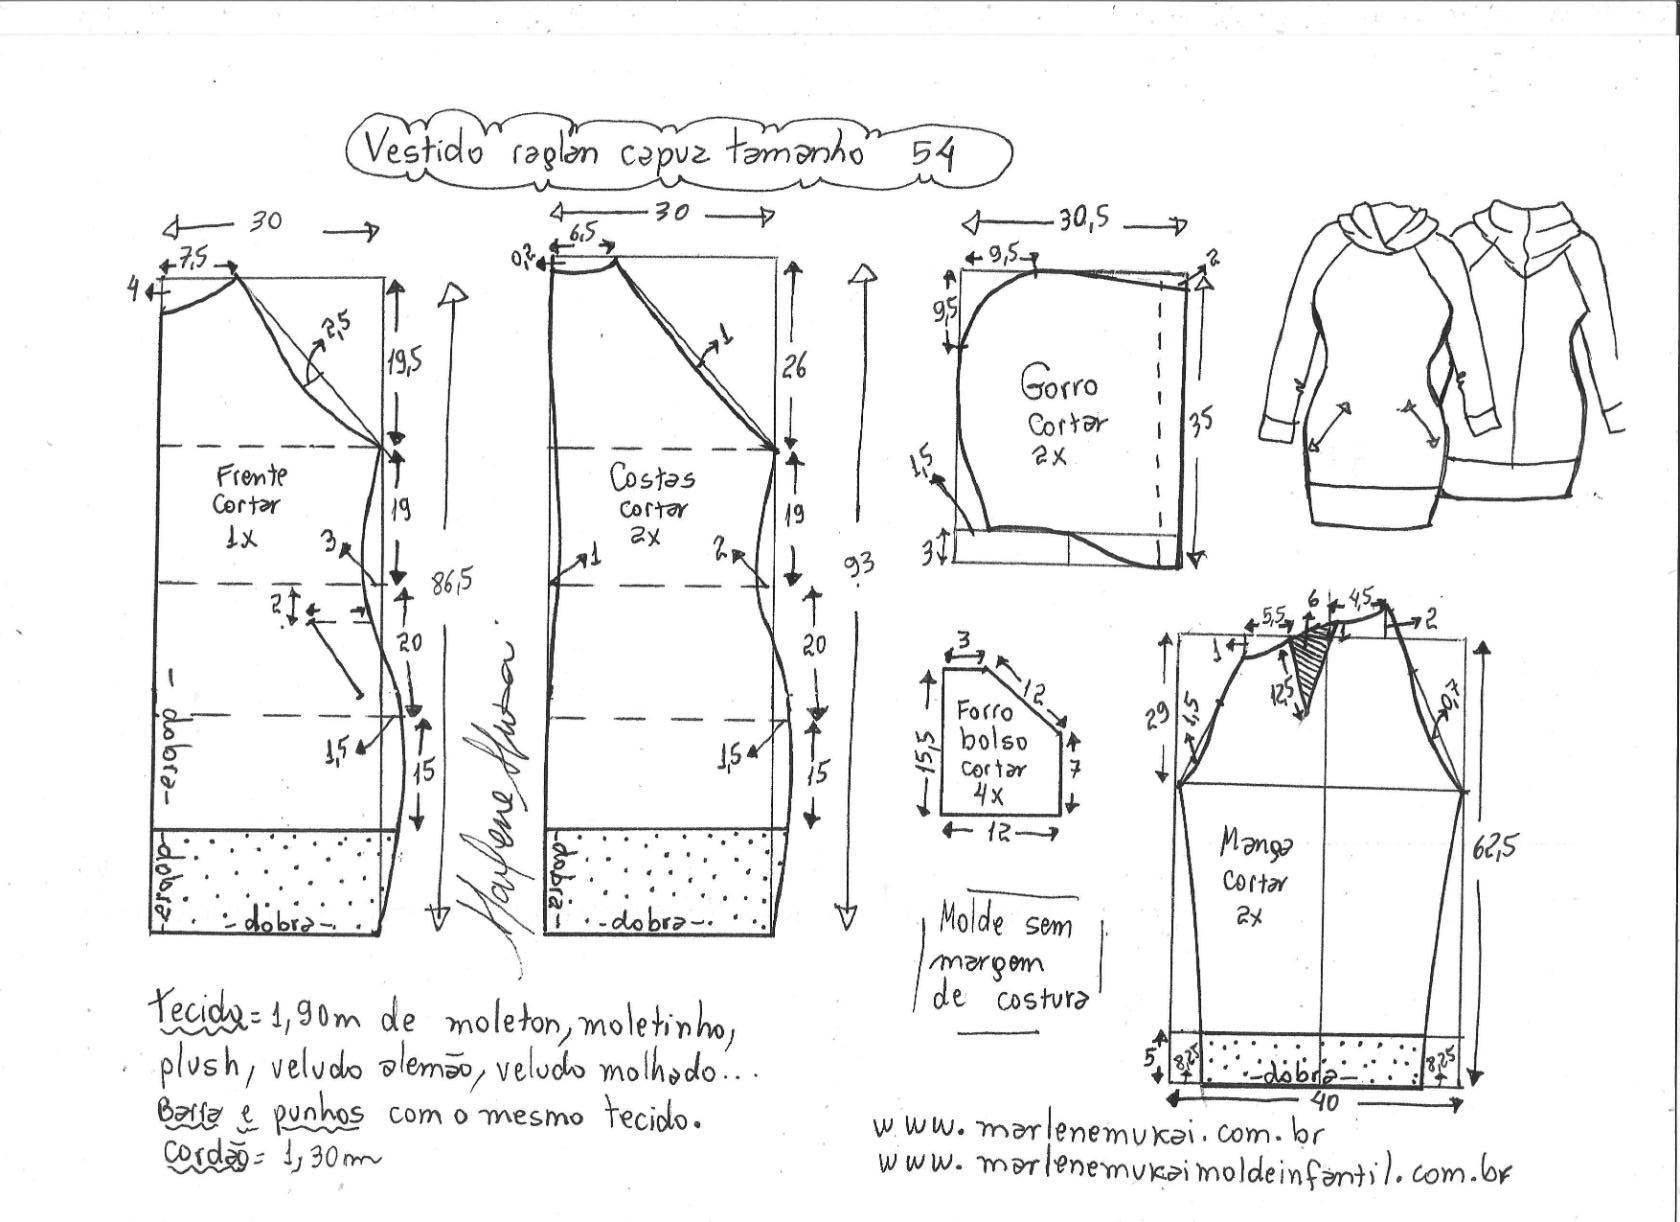 Vestido raglan capuz tamanho 54
30
7,5
4
2,5
19,5
Frente
cortar
1x
19
3
86,5
2
20
1,5
15
-dobra-
-dobra-
-dobra-
30
6,5
0,2
1
26
Costas
cortar
2x
19
1
2
93
20
1,5
15
-dobra-
-dobra-
30,5
9,5
2
9,5
Gorro
cortar
2x
35
1,5
3
3
12
Forro
bolso
cortar
4x
15,5
7
12
6
5,5
4,5
1
1
2
12,5
29
1,5
0,7
Manga
cortar
2x
62,5
5
8,25
-dobra-
8,25
40
Molde sem
margem
de costura
Tecido= 1,90m de moleton, moletinho,
plush, veludo alemão, veludo molhado...
Barra e punhos com o mesmo tecido.
Cordão= 1,30m
www.marlenemukai.com.br
www.marlenemukaimoldeinfantil.com.br